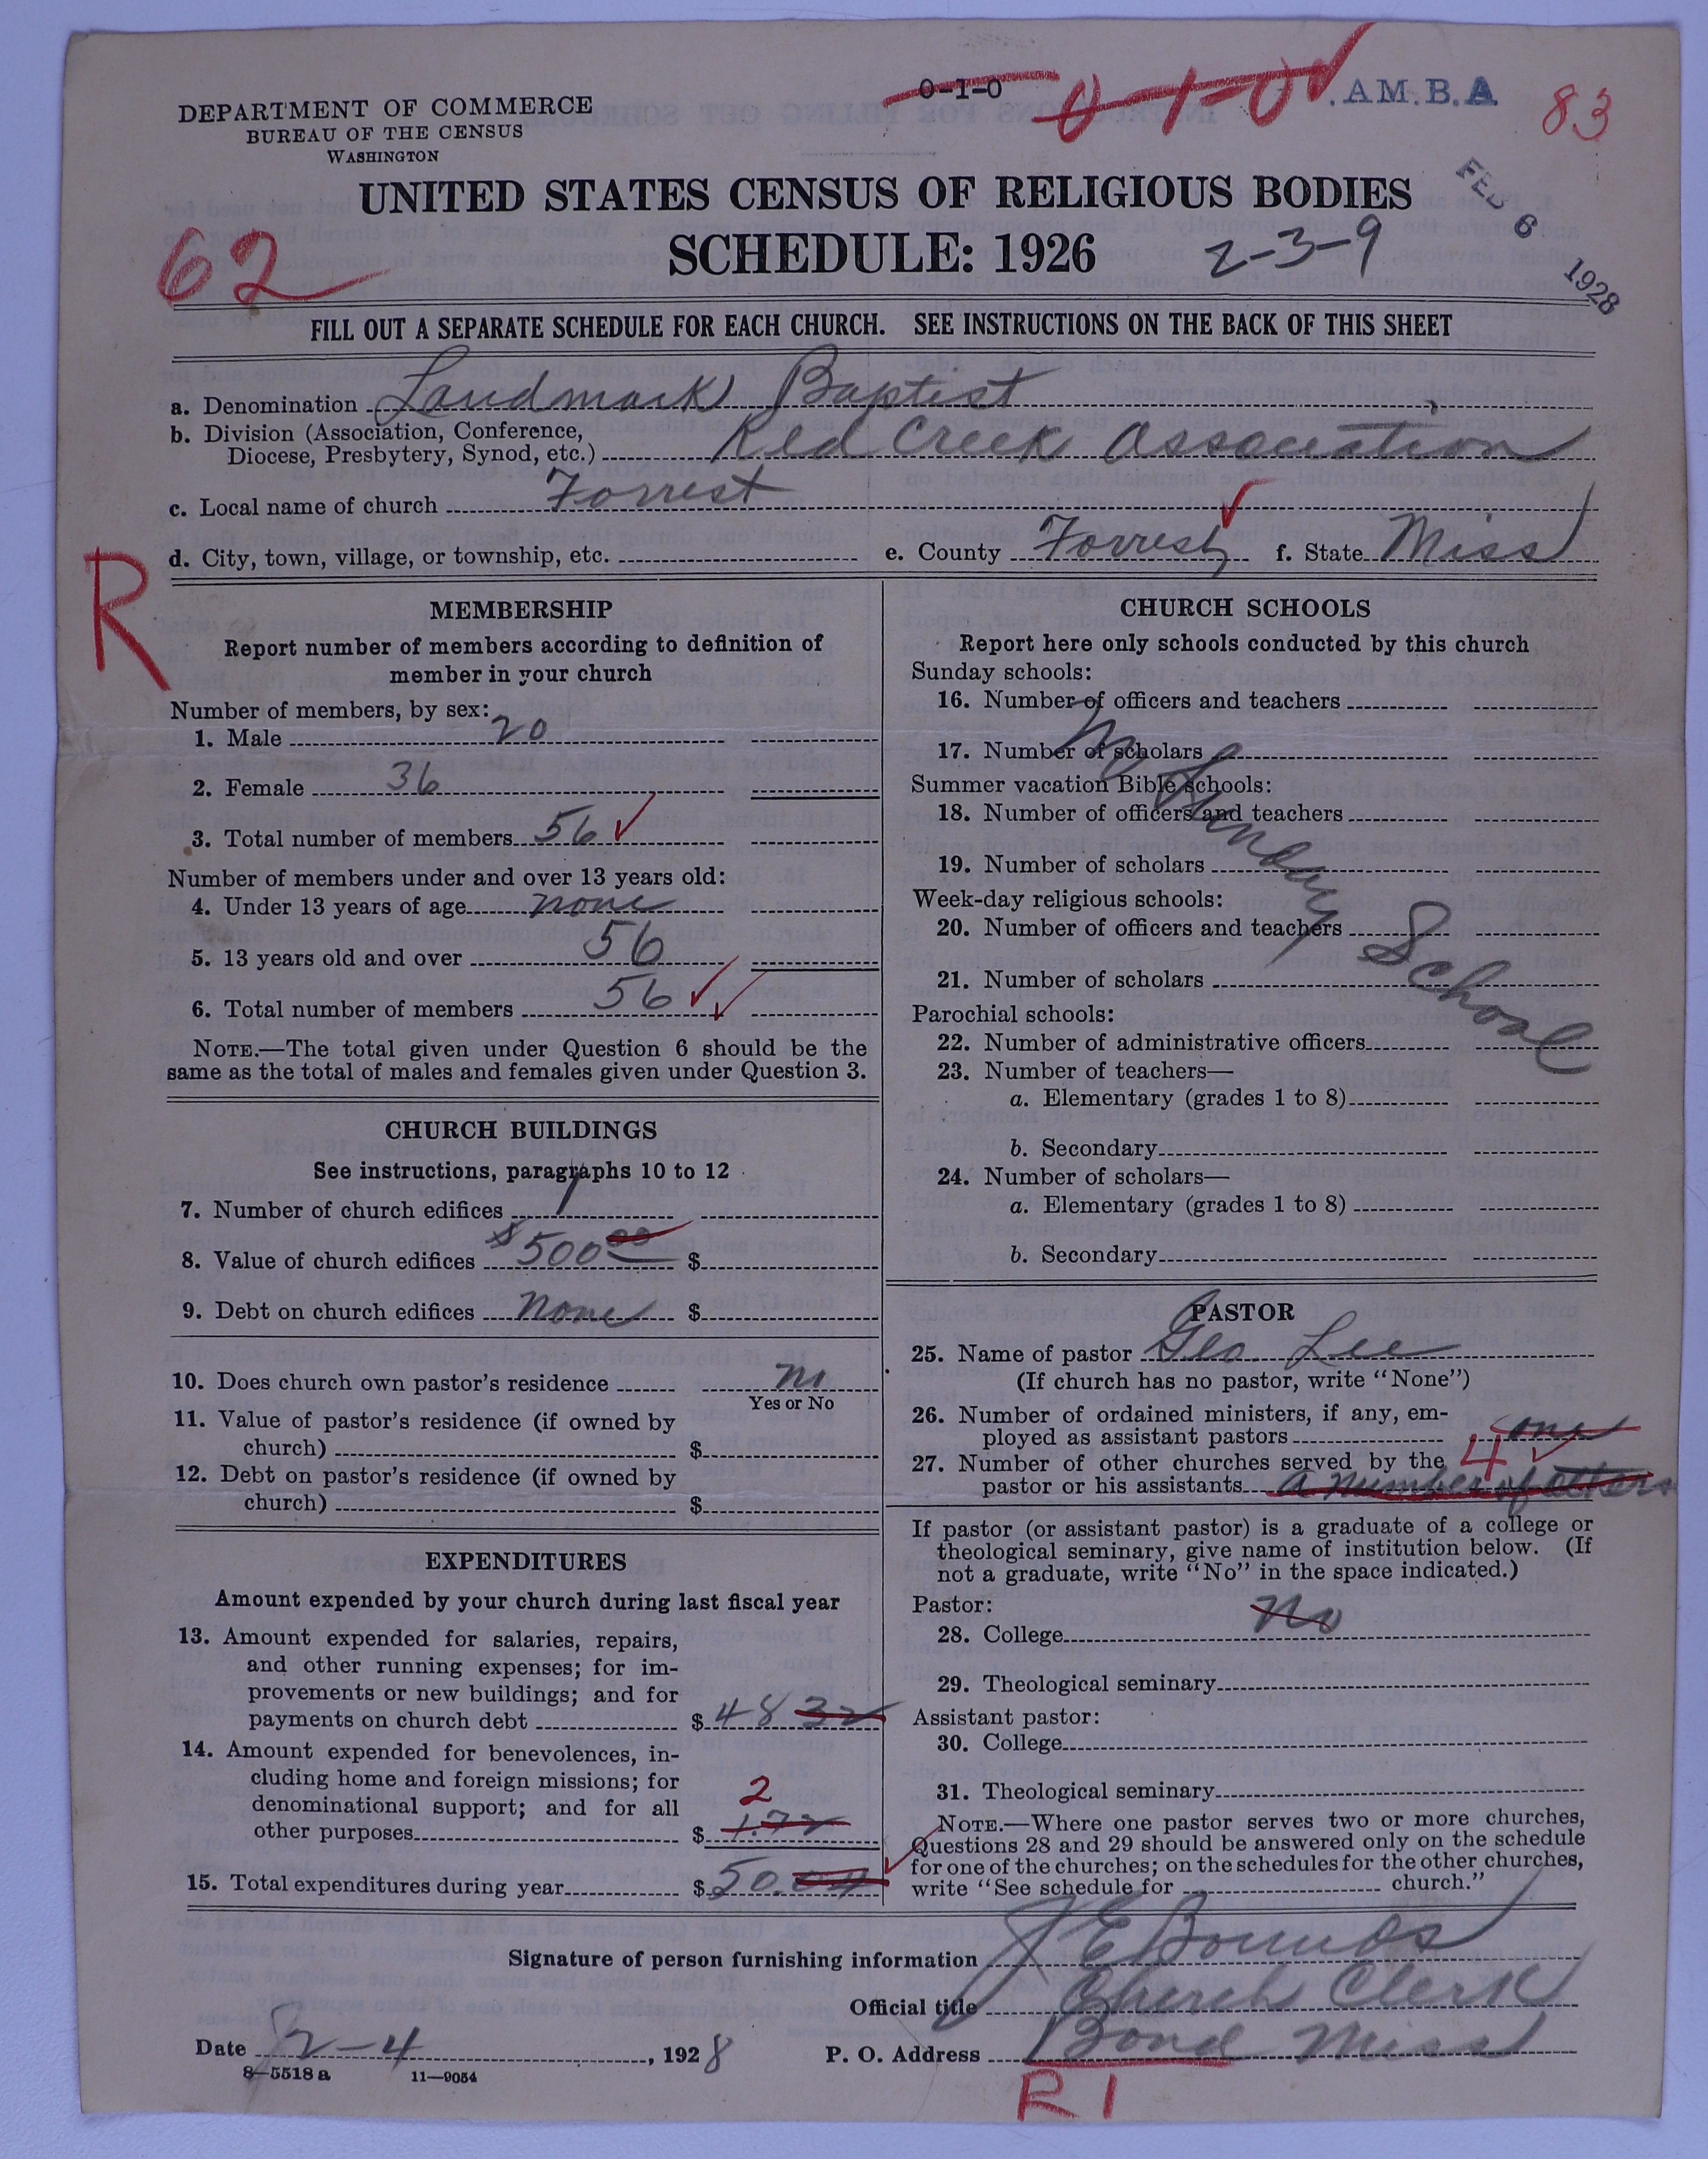 0-1-0
0-1-0
.A.M.B.A
83
DEPARTMENT OF COMMERCE
BUREAU OF THE CENSUS
WASHINGTON
UNITED STATES CENSUS OF RELIGIOUS BODIES
SCHEDULE: 1926
2-3-9
FEB 6 1928
62
FILL OUT A SEPARATE SCHEDULE FOR EACH CHURCH. SEE INSTRUCTIONS ON THE BACK OF THIS SHEET
a. Denomination Landmark Baptist
b. Division (Association, Conference,
Diocese, Presbytery, Synod, etc.) Red Creek Association
c. Local name of church Forrest
d. City, town, village, or township, etc. e. County Forrest f. State Miss
R
MEMBERSHIP
Report number of members according to definition of
member in your church
Number of members, by sex:
1. Male 20
2. Female 36
3. Total number of members 56
Number of members under and over 13 years old:
4. Under 13 years of age none
5. 13 years old and over 56
6. Total number of members 56
NOTE.—The total given under Question 6 should be the
same as the total of males and females given under Question 3.
CHURCH BUILDINGS
See instructions, paragraphs 10 to 12
7. Number of church edifices 1
8. Value of church edifices $500 00 $
9. Debt on church edifices none $
10. Does church own pastor's residence no
Yes or No
11. Value of pastor's residence (if owned by
church) $
12. Debt on pastor's residence (if owned by
church) $
EXPENDITURES
Amount expended by your church during last fiscal year
13. Amount expended for salaries, repairs,
and other running expenses; for im-
provements or new buildings; and for
payments on church debt $ 48 32
14. Amount expended for benevolences, in-
cluding home and foreign missions; for
denominational support; and for all
2
other purposes $ 1.72
15. Total expenditures during year $ 50.04
CHURCH SCHOOLS
Report here only schools conducted by this church
Sunday schools:
16. Number of officers and teachers
17. Number of scholars
Summer vacation Bible schools:
18. Number of officers and teachers
19. Number of scholars
Week-day religious schools:
20. Number of officers and teachers
21. Number of scholars
No Sunday School
Parochial schools:
22. Number of administrative officers
23. Number of teachers—
a. Elementary (grades 1 to 8)
b. Secondary
24. Number of scholars—
a. Elementary (grades 1 to 8)
b. Secondary
PASTOR
25. Name of pastor Geo. Lee
(If church has no pastor, write "None")
26. Number of ordained ministers, if any, em-
ployed as assistant pastors one
27. Number of other churches served by the 4
pastor or his assistants a number of others
If pastor (or assistant pastor) is a graduate of a college or
theological seminary, give name of institution below. (If
not a graduate, write "No" in the space indicated.)
Pastor:
28. College No
29. Theological seminary
Assistant pastor:
30. College
31. Theological seminary
NOTE.—Where one pastor serves two or more churches,
Questions 28 and 29 should be answered only on the schedule
for one of the churches; on the schedules for the other churches,
write "See schedule for church."
Signature of person furnishing information J E Bounds
Official title Church Clerk
Date 2-4, 1928 P. O. Address Bond Miss
8-5518 a 11-9054
R 1